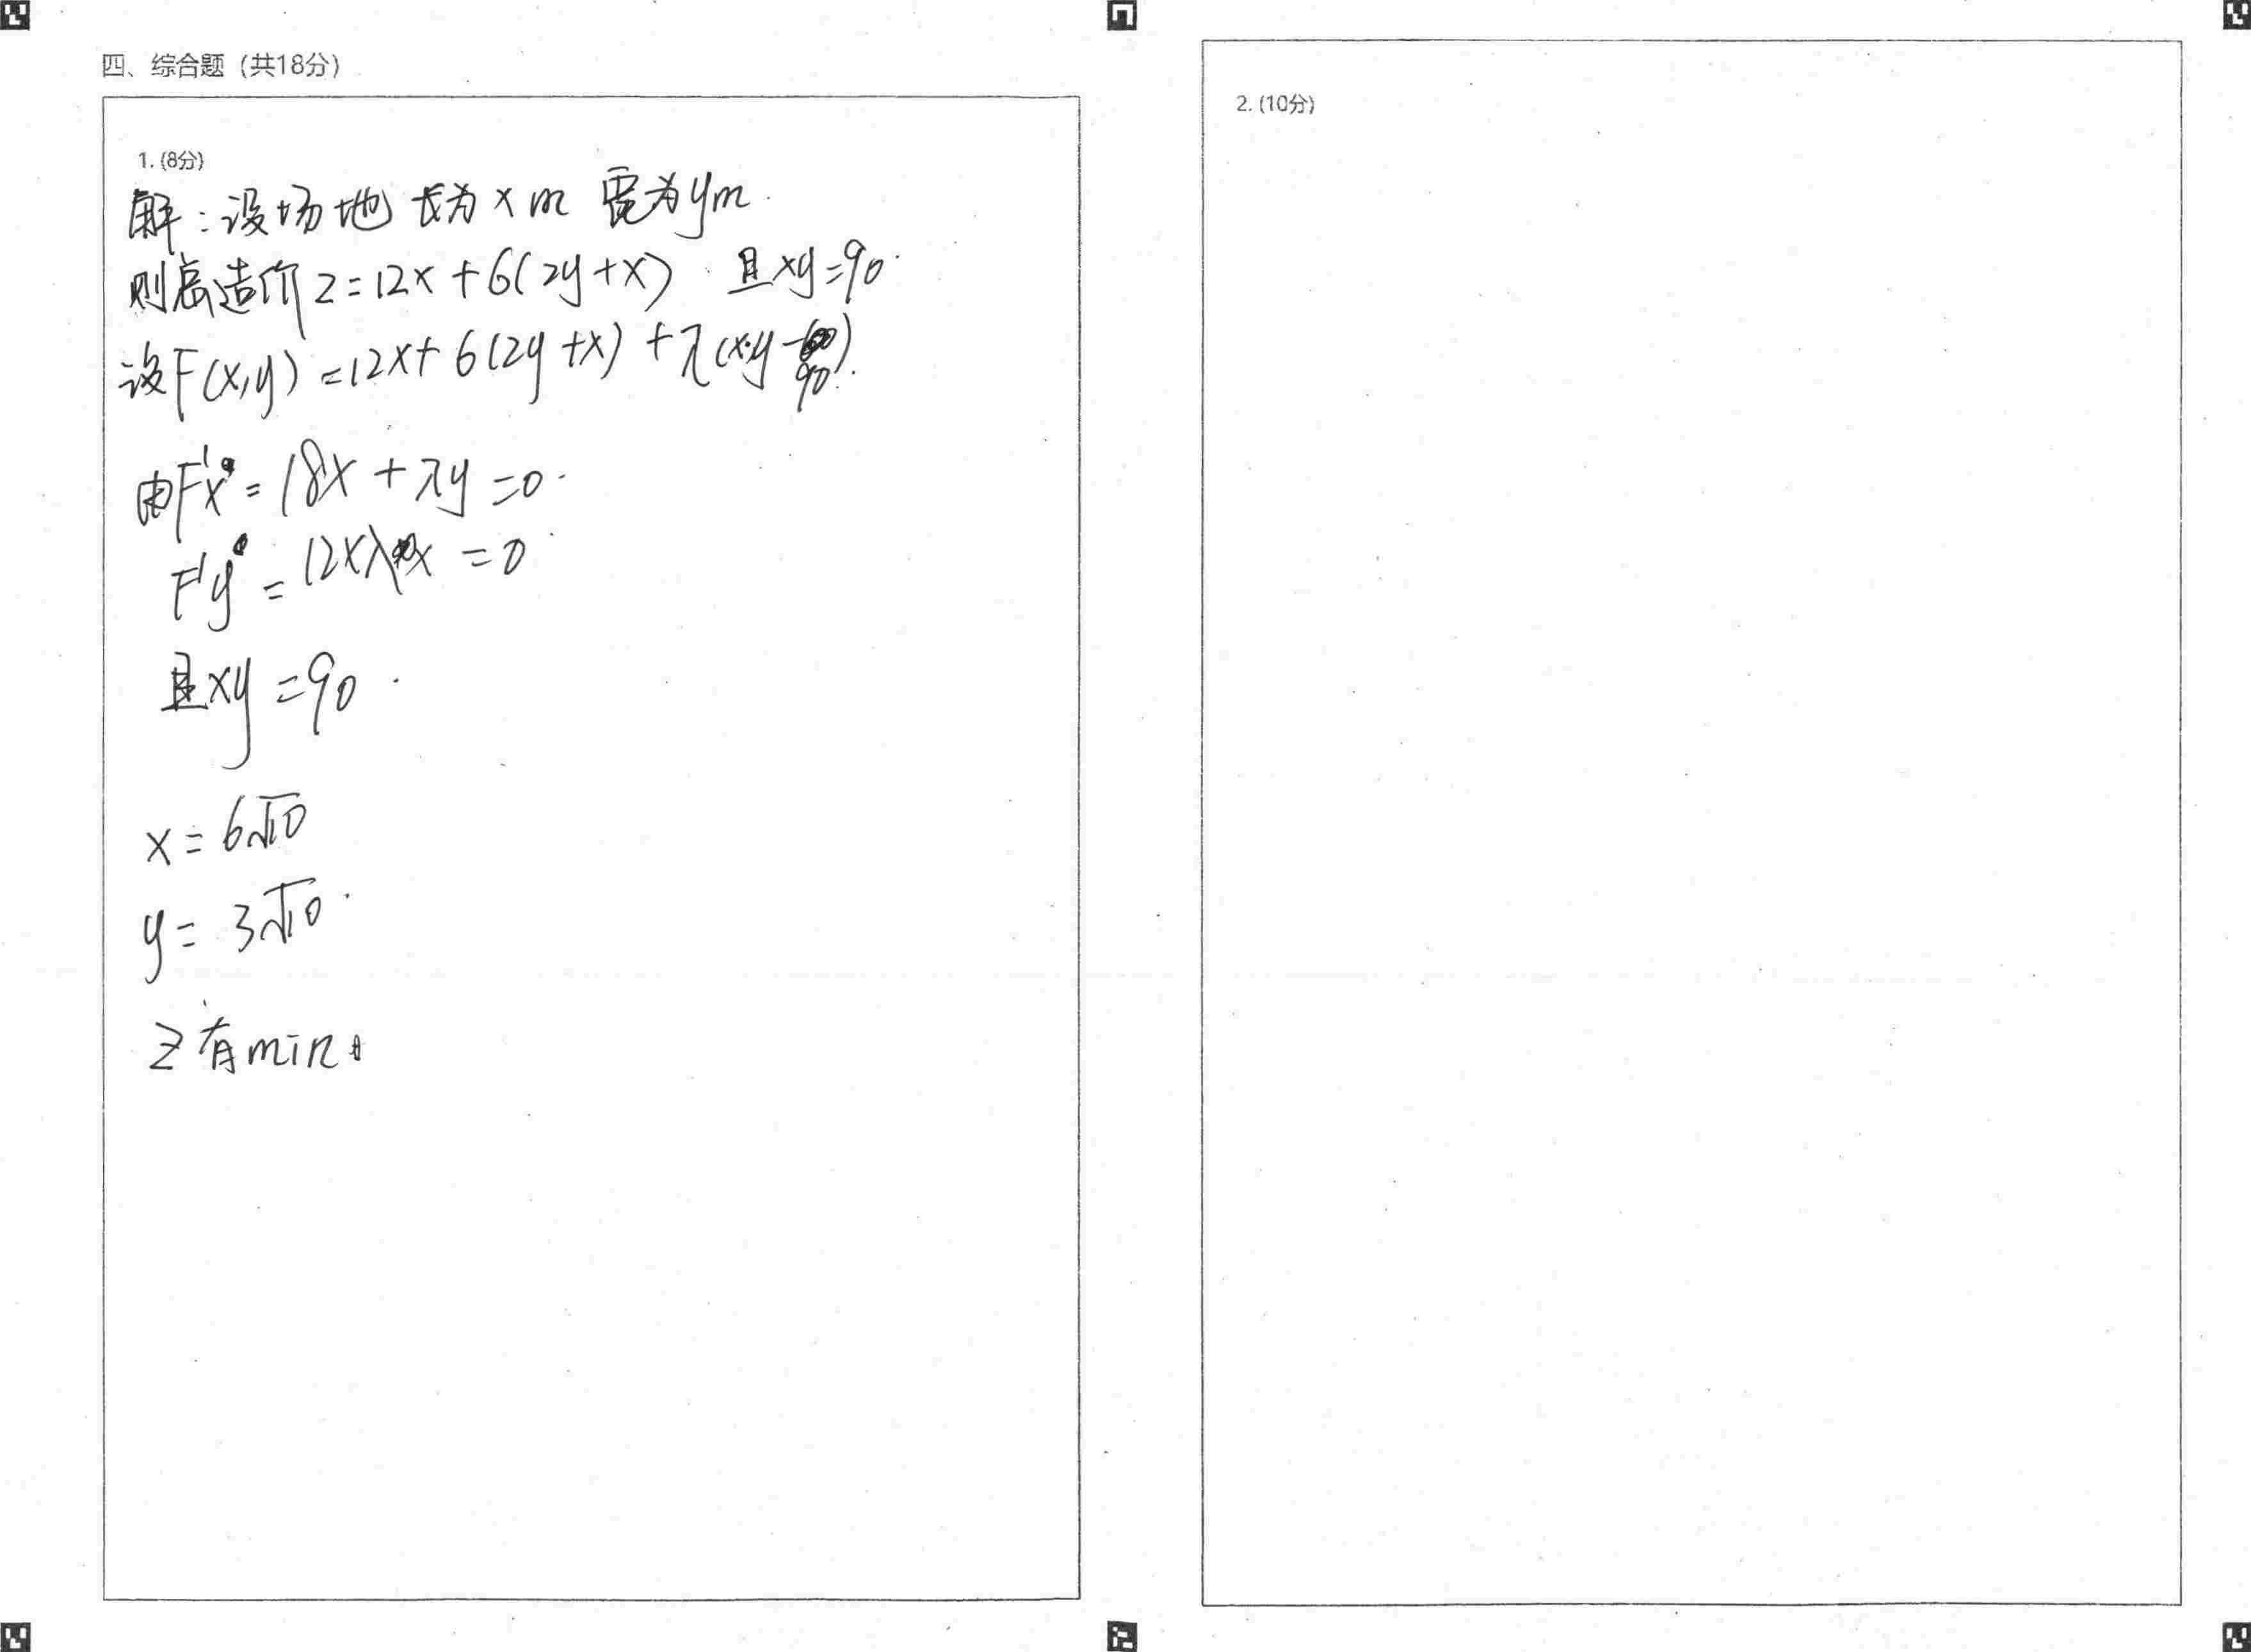 四、综合题（共18分）
1. (8分)
解：设场地长为x m 宽为ym.
则总造价z=12x+6(2y+x) 且xy=90.
设F(x,y)=12x+6(2y+x)+λ(x·y-90).
由F'x=18x+λy=0.
F'y=12xλx=0
且xy=90.
x=6√10
y=3√10.
z有min.
2. (10分)